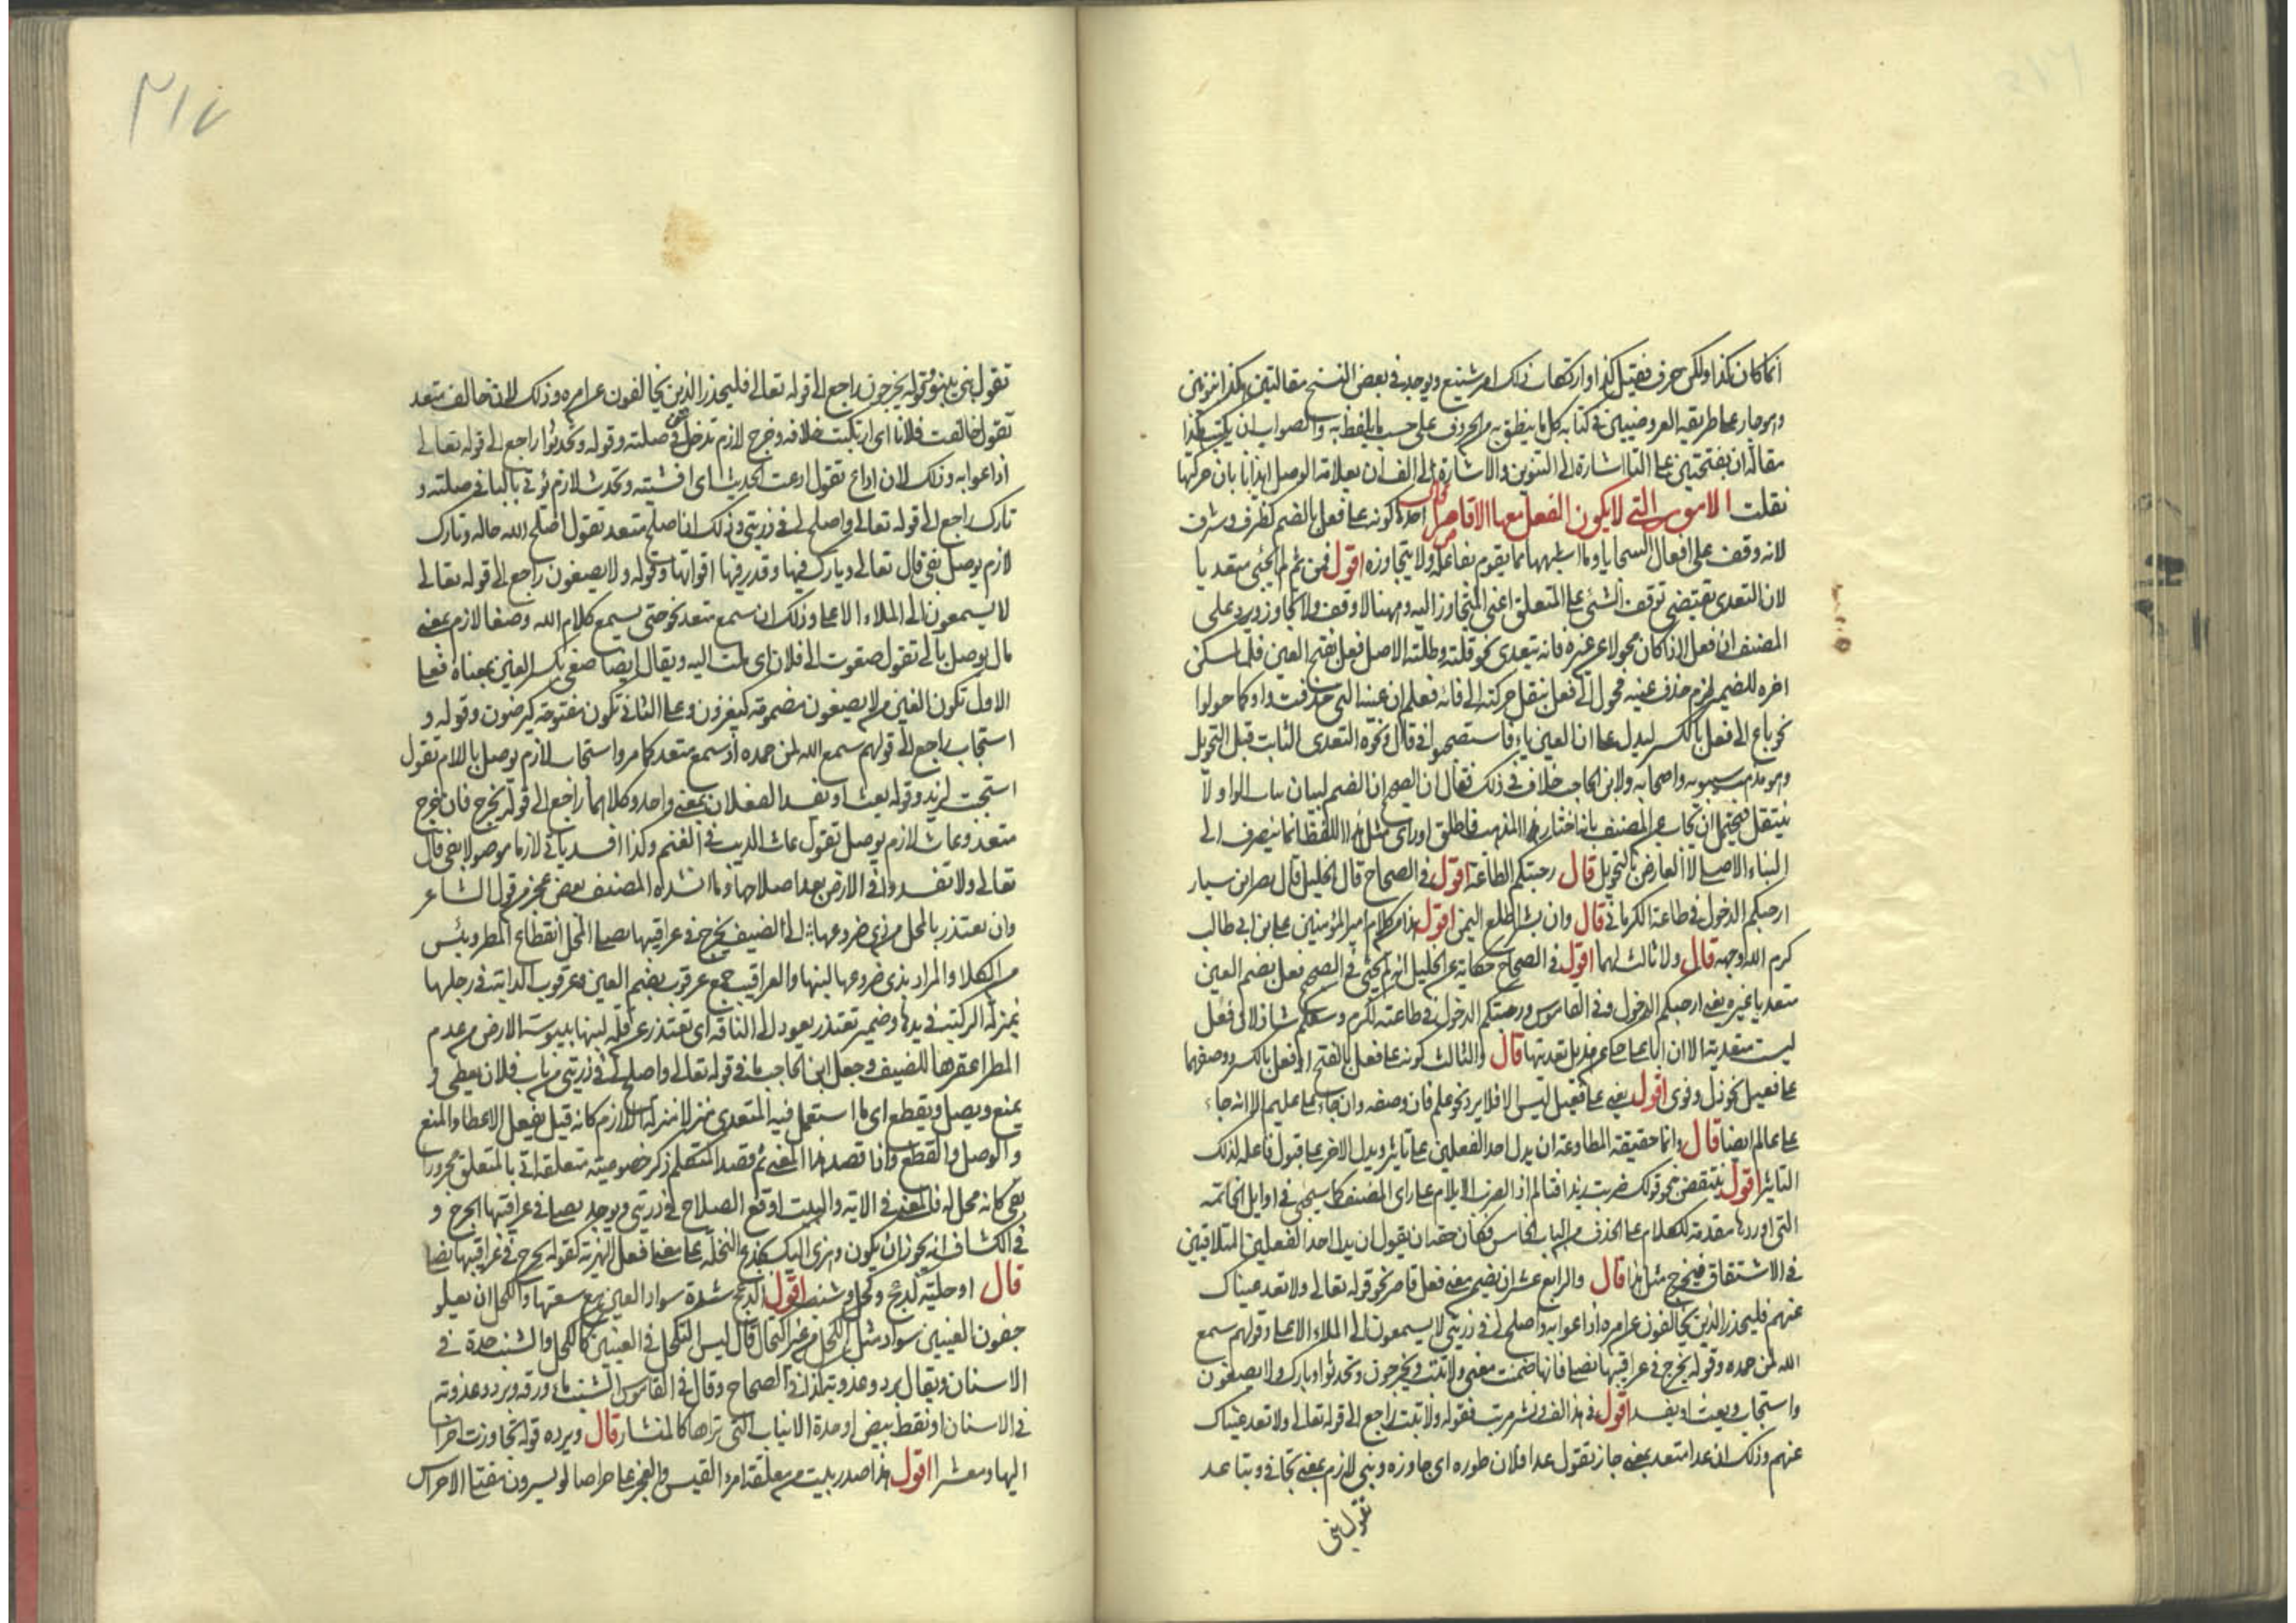 انما كان كذا ولكن حرف فقيل كذا وارتكاب ذلك امر شنيع ويوجد في بعض النسخ مقالتين هكذا بنونين
وهو جار على طريقة العروضيين في كتابة كل ما ينطق به من الحروف على حسب ما يلفظ به والصواب ان يكتب هكذا
مقالة ان بفتحتين على التا اشارة الى التنوين والاشارة الى الف ان بعلامة الوصل ايذانا بان حركتها
نقلت الامور التي لا يكون الفعل معها الا قاصرا قال احدها كونه على فعل بالضم كظرف وشرف
لانه وقف على افعال السجايا وما اشبهها مما يقوم بفاعله ولا يتجاوزه اقول فمن ثم لم يجئ متعديا
لان التعدي يقتضي توقف الشئ على المتعلق اعني المتجاوز اليه وههنا لا وقف ولا تجاوز ويرد على
المصنف ان فعل اذا كان محولا عن غيره فانه يتعدى نحو قلته وطلته الاصل فعل بفتح العين فلما سكن
اخره للضمير لزم حذف عينه فحول الى فعل بنقل حركته الى فائه فعلم ان عينه التي حذفت واو كما حولوا
نحو باع الى فعل بالكسر ليدل على ان العين ياء فاستصحبوا في قال ونحوه التعدي الثابت قبل التحويل
وهو مذهب سيبويه واصحابه ولابن الحاجب خلاف في ذلك فقال ان الصحيح ان الضم لبيان بنات الواو لا
للنقل فيحتمل ان يجاب عن المصنف بانه اختار هذا المذهب فاطلق او راى مثل هذا اللفظ انما ينصرف الى
البناء الاصلي لا العارض بالتحويل قال رحبتكم الطاعة اقول في الصحاح قال الخليل قال نصر ابن سيار
ارحبكم الدخول في طاعة الكرماني قال وان بشرا طلع اليمن اقول هذا من كلام امير المؤمنين على بن ابي طالب
كرم الله وجهه قال ولا ثالث لهما اقول في الصحاح حكاية عن الخليل انه لم يجئ في الصحيح فعل بضم العين
متعديا غيره يعني ارحبكم الدخول وفي القاموس ورحبتكم الدخول في طاعته ككرم وسعكم شاذ لان فعل
ليست متعدية الا ان ابا علي حكى عن هذيل تعديتها قال والثالث كونه على فعل بالفتح او فعل بالكسر ووصفهما
على فعيل نحو ذل وقوي اقول يعني على فعيل ليس الا فلا يرد نحو علم فان وصفه وان جاء على عليم الا انه جاء
على عالم ايضا قال وانما حقيقة المطاوعة ان يدل احد الفعلين على تاثير ويدل الاخر على قبول فاعله لذلك
التاثير اقول ينتقض بنحو قولك ضربت زيدا فتالم اذ الضرب الايلام على راى المصنف كما سيجئ في اوايل الخاتمة
التي اوردها مقدمة للكلام على الحذف من الباب الخامس فكان حقه ان يقول ان يدل احد الفعلين المتلاقيين
في الاشتقاق فيخرج مثل هذا قال والرابع عشر ان يضمن معنى فعل قاصر نحو قوله تعالى ولا تعد عيناك
عنهم فليحذر الذين يخالفون عن امره اذاعوا به واصلح لي في ذريتي لا يسمعون الى الملاء الاعلى وقولهم سمع
الله لمن حمده وقوله يجرح في عراقيبها نصلي فانها ضمنت معنى ولا تنب ويخرجون وتحدثوا وبارك ولا يصغون
واستجاب ويعث او يفسد اقول في هذا لف ونشر مرتب فقوله ولا تنب راجع الى قوله تعالى ولا تعد عيناك
عنهم وذلك ان عدا متعد بمعنى جاز تقول عدا فلان طوره اي جاوزه ونبى لازم بمعنى تجافى وتباعد
تقول نبى
تقول نبى ينبو وقوله يخرجون راجع الى قوله تعالى فليحذر الذين يخالفون عن امره وذلك لان خالف متعد
تقول خالفت فلانا اي ارتكبت خلافه وخرج لازم تدخل عن في صلته وقوله وتحدثوا راجع الى قوله تعالى
اذاعوا به وذلك لان اذاع تقول اذعت الحديث اي افشيته وتحدث لازم يؤتى بالبا في صلته و
بارك راجع الى قوله تعالى واصلح لي في ذريتي وذلك ان اصلح متعد تقول اصلح الله حاله وبارك
لازم يوصل بفي قال تعالى وبارك فيها وقدر فيها اقواتها وقوله ولا يصغون راجع الى قوله تعالى
لا يسمعون الى الملاء الاعلى وذلك ان سمع متعد نحو حتى يسمع كلام الله وصغا لازم بمعنى
مال يوصل بالى تقول صغوت الى فلان اي ملت اليه ويقال ايضا صغي بكسر الغين بمعناه فعلى
الاول تكون الغين من لا يصغون مضمومة كيغزون وعلى الثاني تكون مفتوحة كيرضون وقوله و
استجاب راجع الى قولهم سمع الله لمن حمده اذ سمع متعد كما مر واستجاب لازم يوصل باللام تقول
استجبت لزيد وقوله يعث او يفسد الفعلان بمعنى واحد وكلاهما راجع الى قوله يجرح فان جرح
متعد وعاث لازم يوصل تقول عاث الذيب في الغنم وكذا افسد ياتي لازما موصولا بفي قال
تعالى ولا تفسدوا في الارض بعد اصلاحها وما انشده المصنف بعض عجز من قول الشاعر
وان تعتذر بالمحل من ذي ضروعها الى الضيف يجرح في عراقيبها نصلي المحل انقطاع المطر ويبس
من الكلا والمراد بذي ضروعها لبنها والعراقيب جمع عرقوب بضم العين وعرقوب الدابة في رجلها
بمنزلة الركبة في يدها وضمير تعتذر يعود الى الناقة اي تعتذر عن قلة لبنها بيبوسة الارض من عدم
المطر اعقرها للضيف وجعل ابن الحاجب ما في قوله تعالى واصلح لي في ذريتي من باب فلان يعطي و
يمنع ويصل ويقطع اي ما استعمل فيه المتعدي منزلا منزلة اللازم كانه قيل يفعل الاعطا والمنع
والوصل والقطع واذا قصد هذا المعنى ثم قصد المتكلم ذكر خصوصية متعلقة اتى بالمتعلق مجرورا
بفي كانه محل له فالمعنى في الاية والبيت اوقع الصلاح في ذريتي ويوجد نصلي في عراقيبها الجرح و
في الكشاف انه يجوز ان يكون وهزي اليك بجذع النخلة على معنى افعلي الهز به كقوله يجرح في عراقيبها نصلي
قال او حلية كدعج وكحل وشنب اقول الدعج شدة سواد العين مع سعتها والكحل ان يعلو
جفون العينين سواد مثل الكحل من غير اكتحال قال ليس التكحل في العينين كالكحل والشنب حدة في
الاسنان ويقال برد وعذوبة كذا في الصحاح وقال في القاموس الشنب ماء ورقة وبرد وعذوبة
في الاسنان او نقط بيض او حدة الانياب التي تراها كالمنشار قال ويرده قوله تجاوزت احراسا
اليها ومعشرا اقول هذا صدر بيت من معلقة امرؤ القيس والعجز على حراصا لو يسرون مقتلي الاحراس